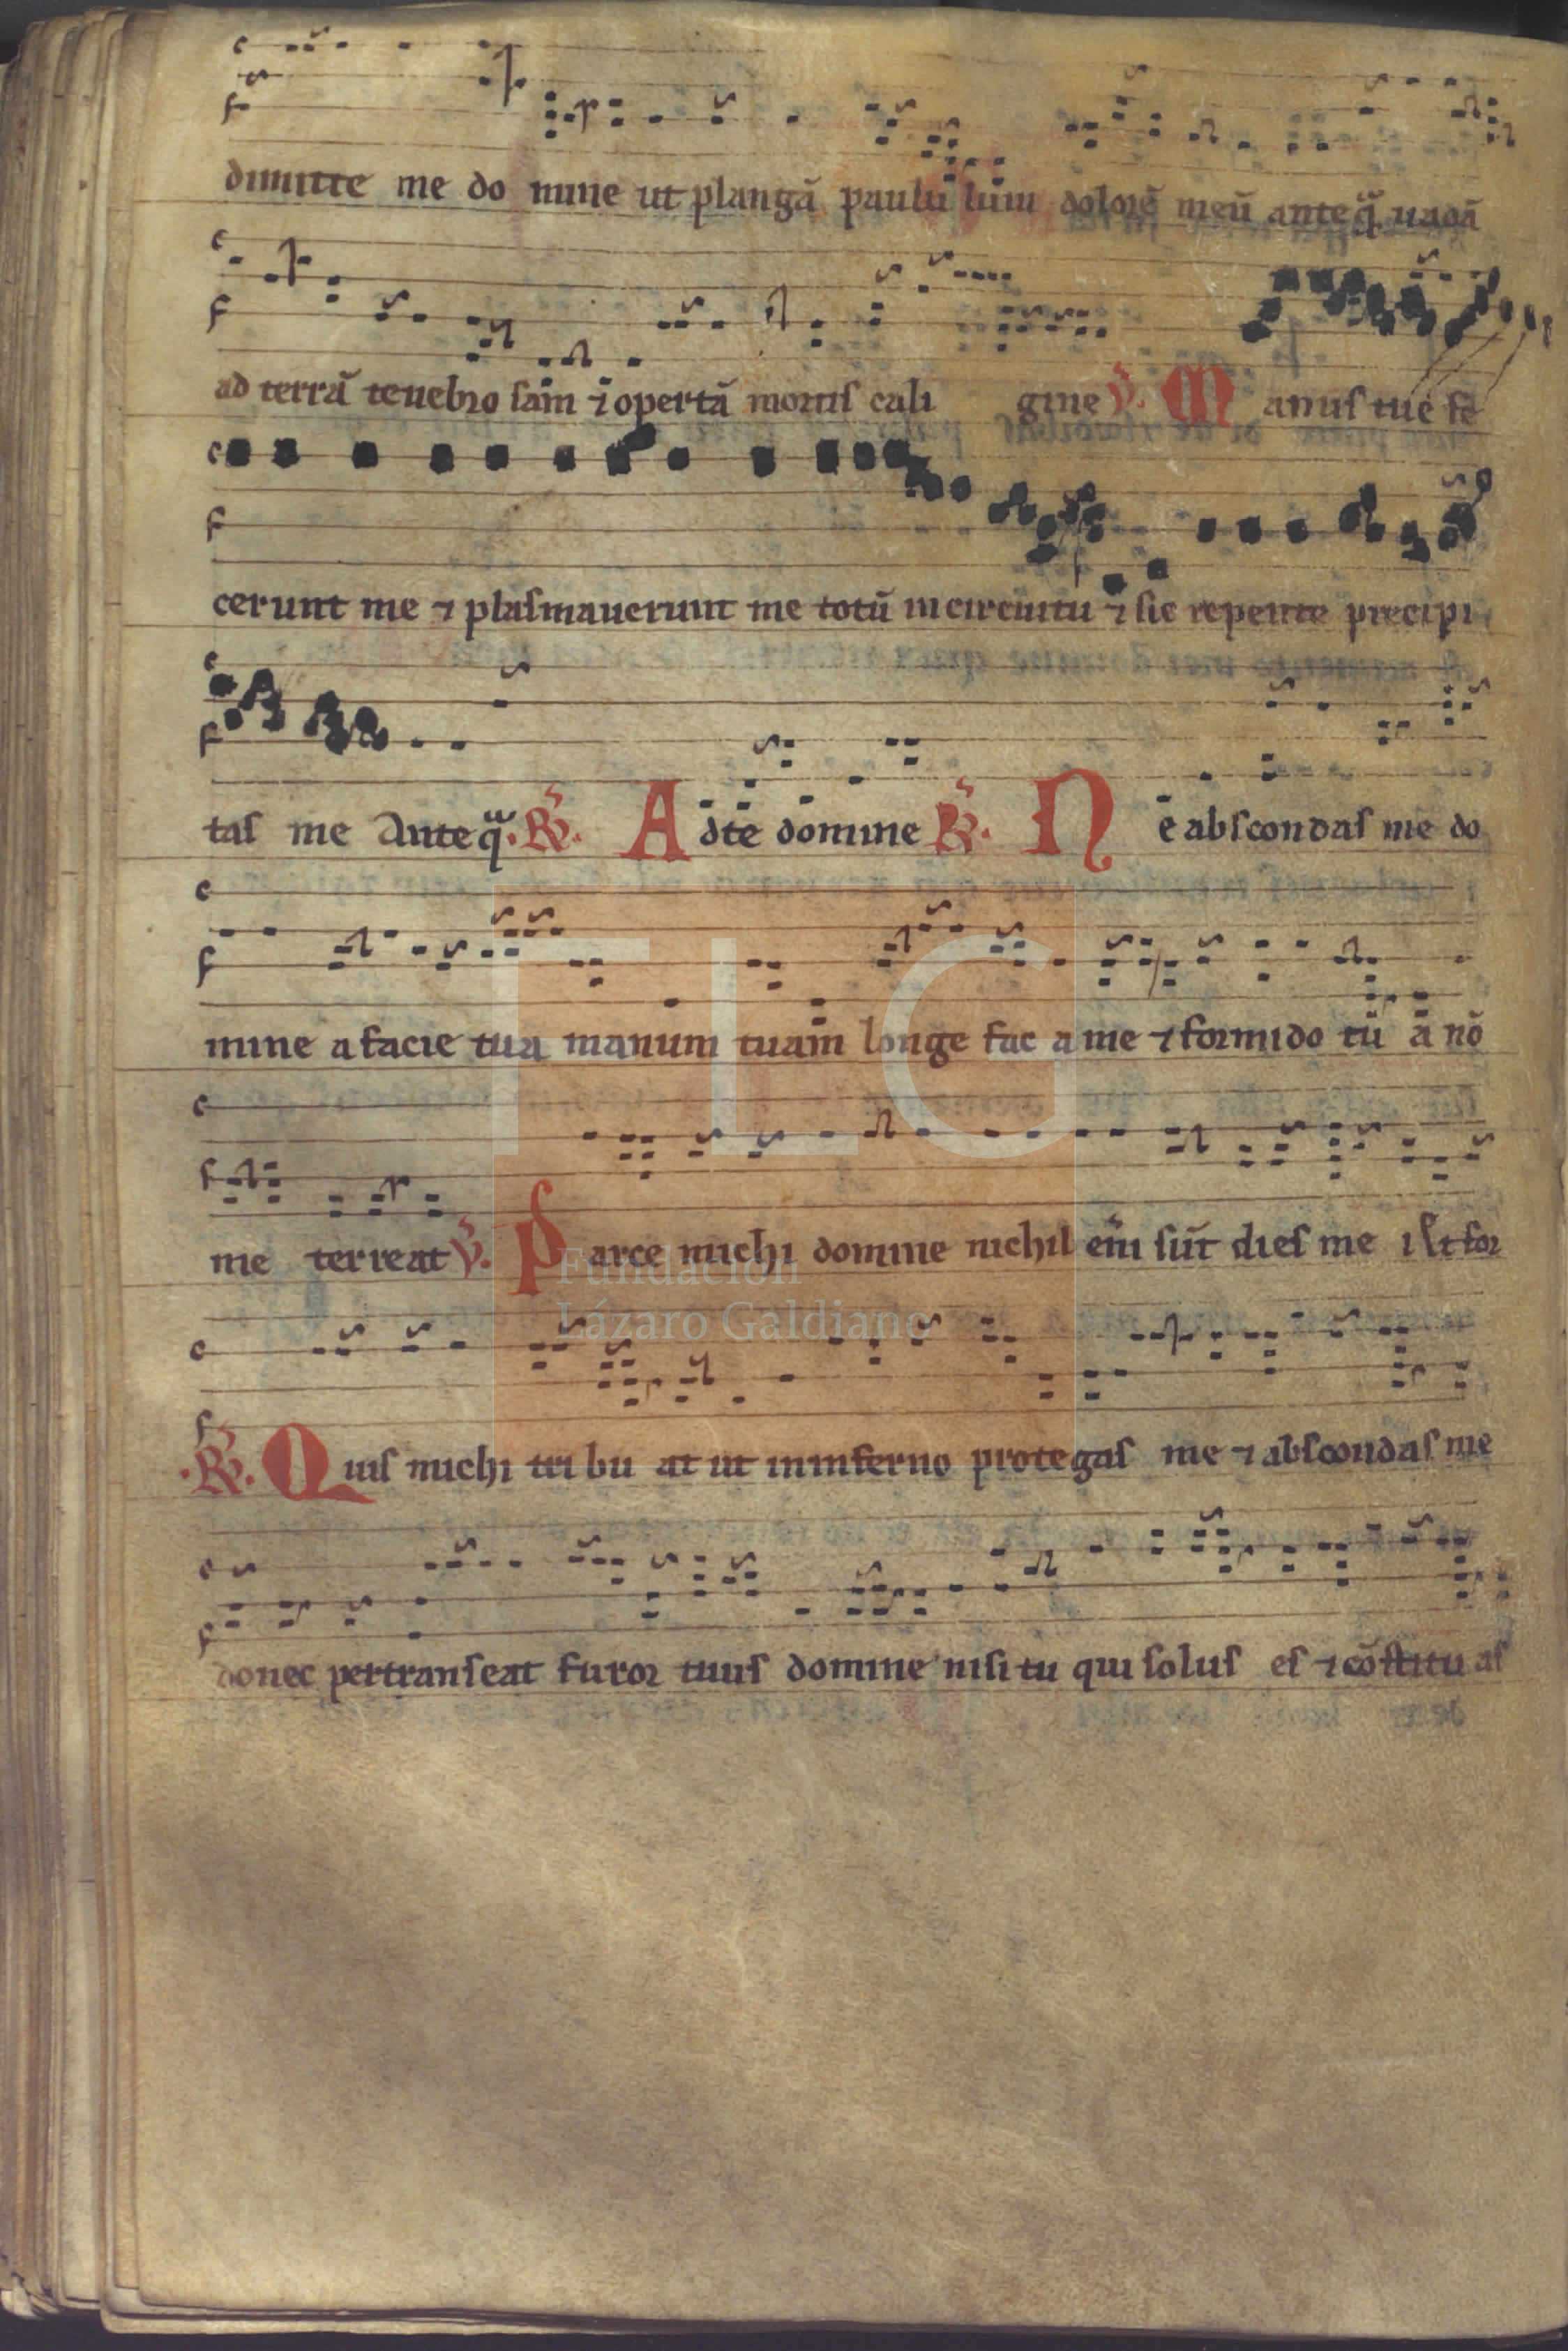 dimitte me do mine ut plangā paulu lum dolorē meū anteq̄ uadā
ad terrā tenebro sam ⁊ opertā mortis cali gine V̄. Manus tue fe
cerunt me ⁊ plasmauerunt me totū in circuitu ⁊ sic repente precipi
tas me Anteq̄. R̄. Ad te domine R̄. Ne abscondas me do
mine a facie tua manum tuam longe fac a me ⁊ formido tū a nō
me terreat V̄. Parce michi domine nichil em̄ sūt dies me i
R̄. Quis michi tri bu at ut in inferno protegas me ⁊ abscondas me
donec pertranseat furor tuus domine nisi tu qui solus es ⁊ cōstitu as
FLG
Fundación
Lázaro Galdiano